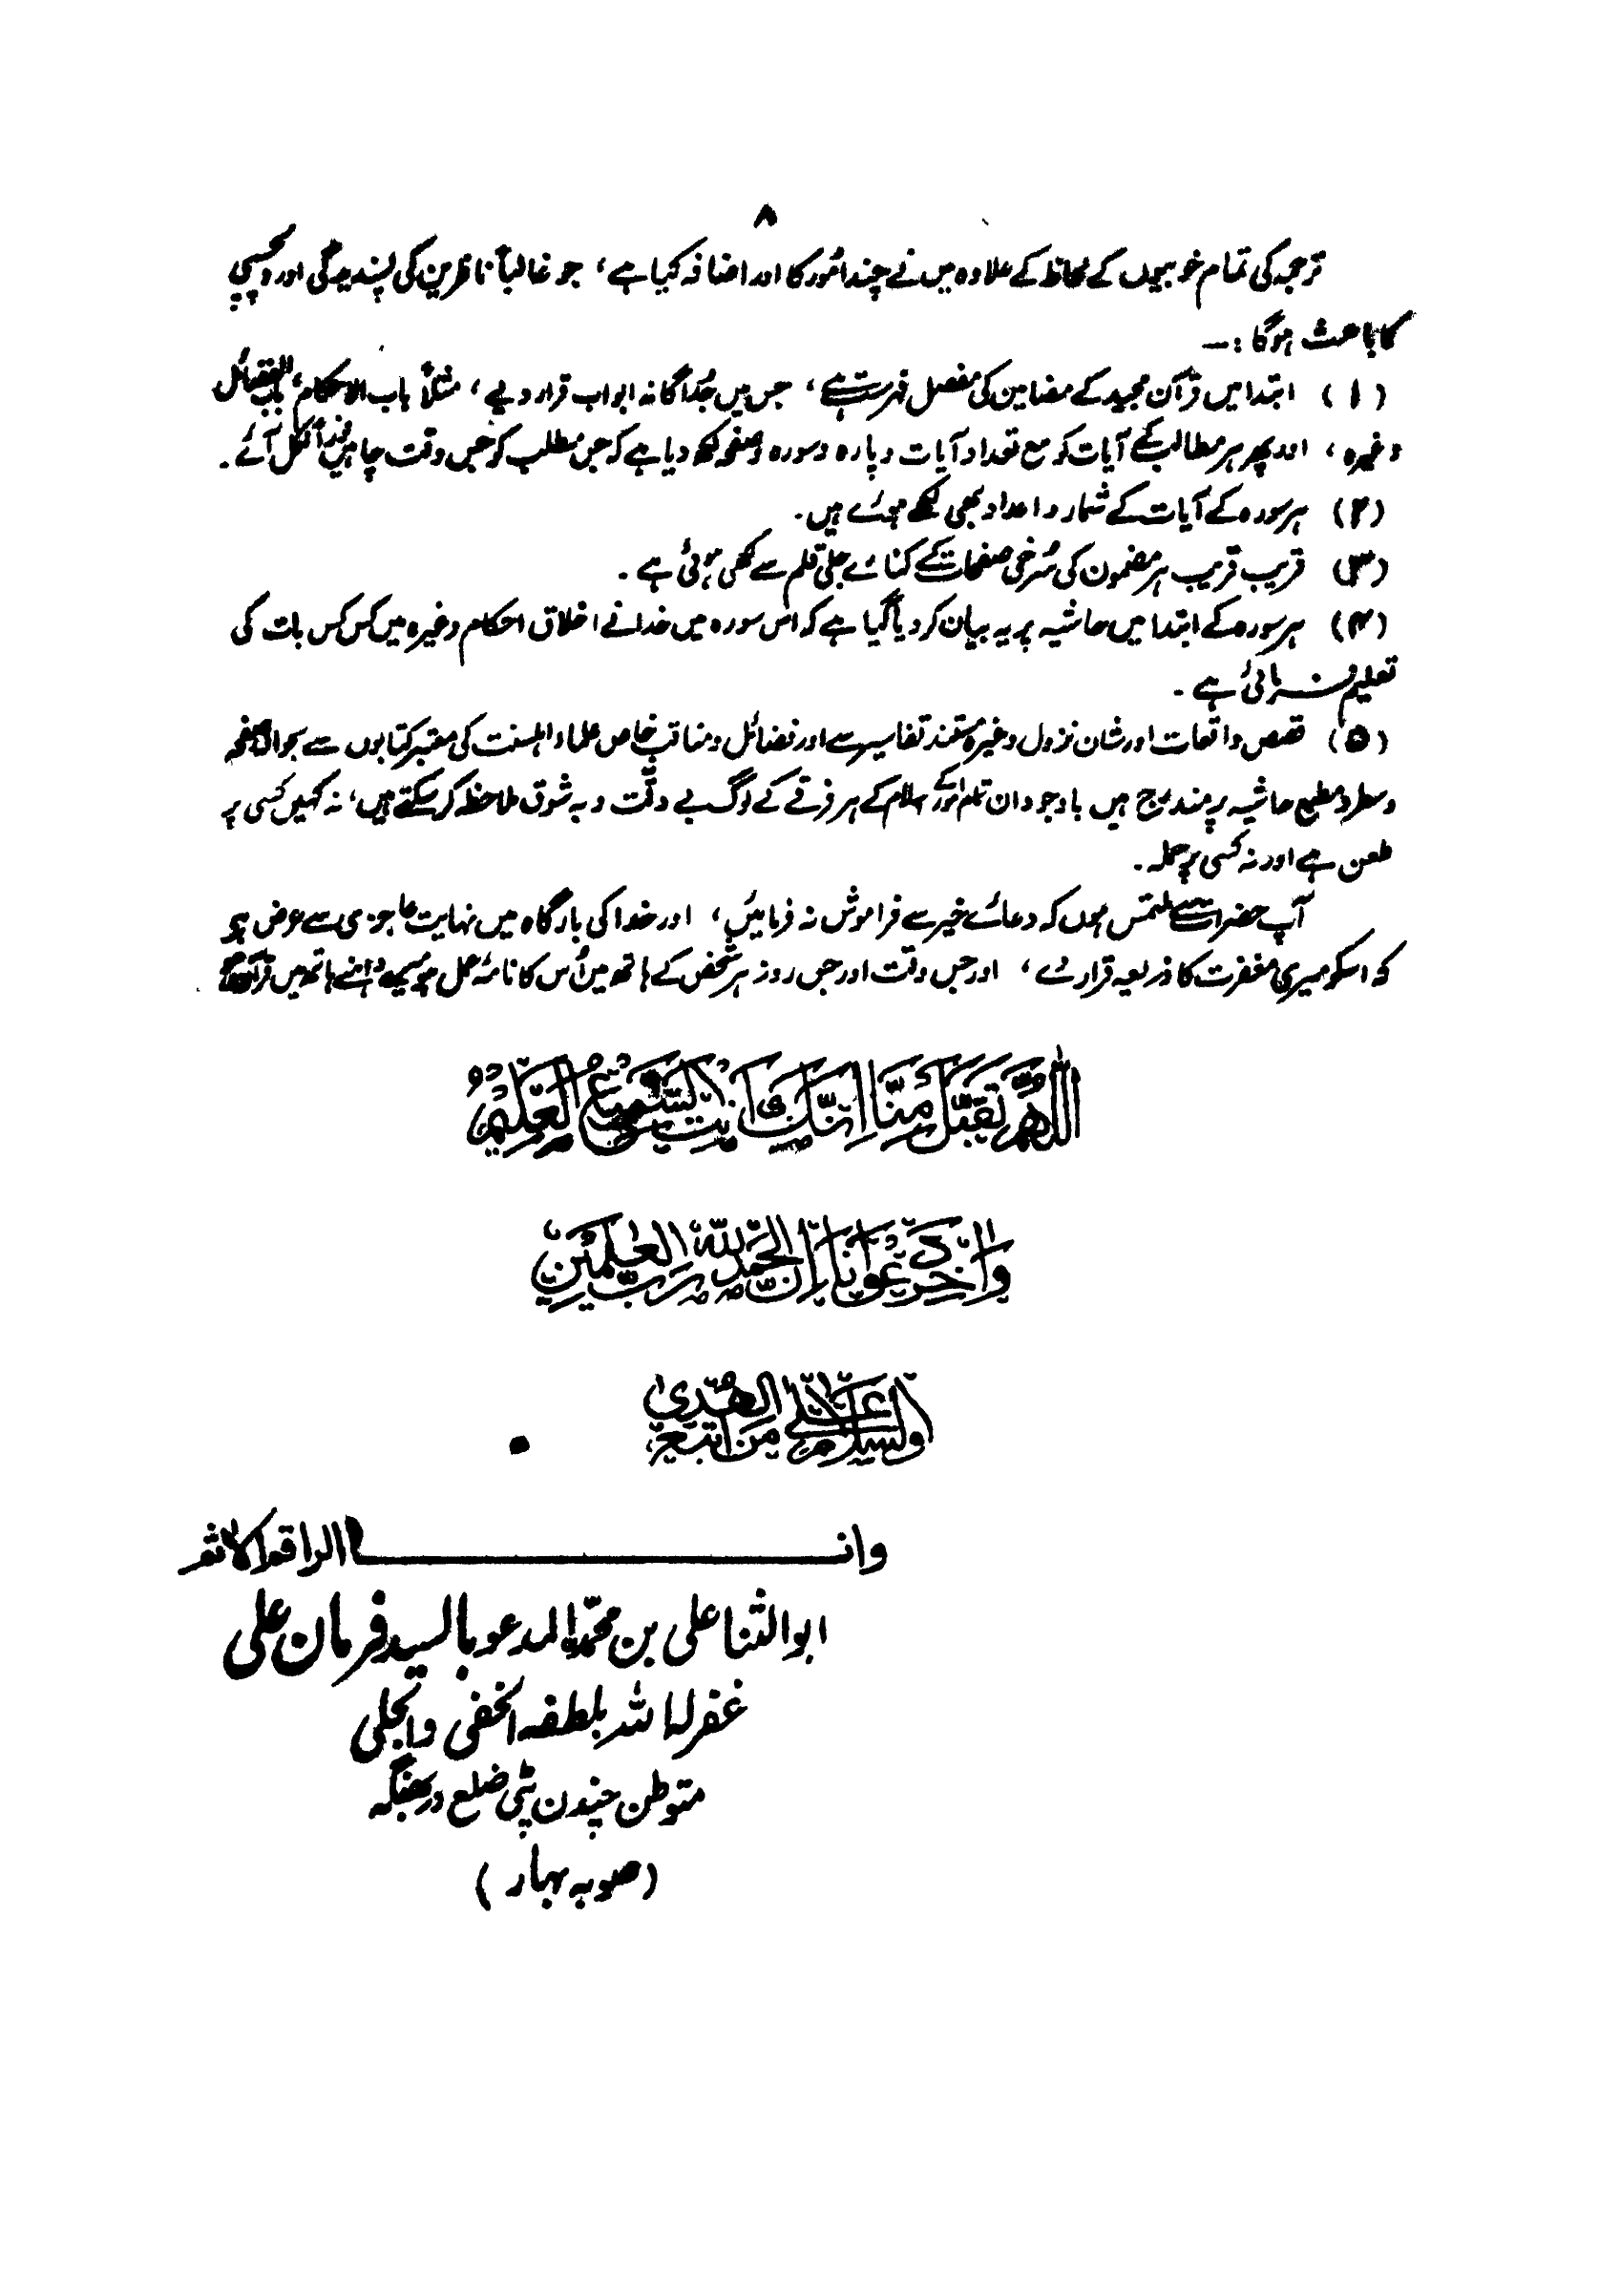 ۸
ترجمہ کی تمام خوبیوں کے لحاظ کے علاوہ میں نے چند امُور کا اور اضافہ کیا ہے، جو غالباً ناظرین کی پسندیدگی اور دلچسپی
کا باعث ہوگا :۔
(۱) ابتدا میں قرآن مجید کے مضامین کی مفصل فہرست ہے، جس میں جُداگانہ ابواب قرار دیے، مثلاً باب الاحکام، باب القصائل
وغیرہ، اور پھر ہر مطالب کے آیات کو مع تعداد آیات و پارہ و سورہ و صفحہ لکھ دیا ہے کہ جس مطلب کو جس وقت چاہیں فوراً نکل آئے۔
(۲) ہر سورہ کے آیات کے شمار و اعداد بھی لکھے ہوئے ہیں۔
(۳) قریب قریب ہر مضمون کی سُرخی صفحات کے کنارے جلی قلم سے لکھی ہوئی ہے۔
(۴) ہر سورہ کے ابتدا میں حاشیہ پر یہ بیان کر دیا گیا ہے کہ اس سورہ میں خدا نے اخلاق احکام وغیرہ میں کس کس بات کی
تعلیم فرمائی ہے۔
(۵) قصص واقعات اور شان نزول وغیرہ مستند تفاسیر سے اور فضائل و مناقب خاص علماء اہلسنت کی معتبر کتابوں سے بحوالہ صفحہ
و سطر و مطبع حاشیہ پر مندرج ہیں باوجود ان تمام امور کے اسلام کے ہر فرقے کے لوگ بے دقّت و بہ شوق ملاحظہ کر سکتے ہیں، نہ کہیں کسی پر
طعن ہے اور نہ کسی پر حملہ۔
آپ حضرات سے ملتمس ہوں کہ دعائے خیر سے فراموش نہ فرمائیں، اور خدا کی بارگاہ میں نہایت عاجزی سے عرض ہے
کہ اسکو میری مغفرت کا ذریعہ قرار دے، اور جس وقت اور جس روز ہر شخص کے ہاتھ میں اُس کا نامۂ عمل ہو میرے داہنے ہاتھ میں قرآن ہو
اَللّٰهُمَّ تَقَبَّلْ مِنَّا اِنَّكَ اَنْتَ السَّمِيْعُ الْعَلِيْمُ
وَاٰخِرُ دَعْوَانَا اَنِ الْحَمْدُ لِلّٰهِ رَبِّ الْعٰلَمِيْنَ
وَالسَّلَامُ عَلٰى مَنِ اتَّبَعَ الْهُدٰى
وانا الراقم الاثم
ابو الثنا علی بن محمّد المدعو بالسید فرمان علی
غفر لہ اللہ بلطفہ الخفی والجلی
متوطن چندن پٹی ضلع دربھنگہ
(صوبہ بہار)